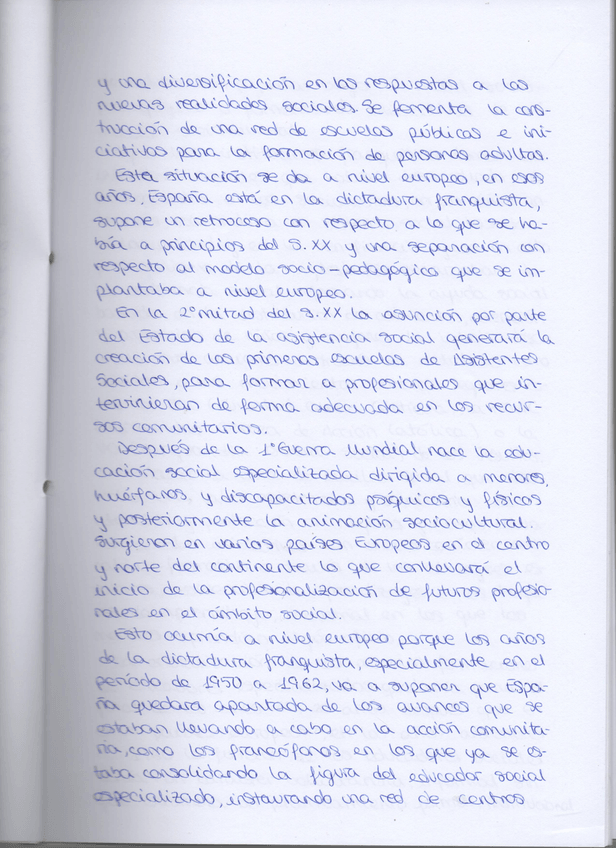 y una diversificación en las respuestas a las
nuevas realidades sociales. Se fomenta la cons-
trucción de una red de escuelas públicas e ini-
ciativas para la formación de personas adultas.
Esta situación se da a nivel europeo, en esos
años, España está en la dictadura franquista,
supone un retroceso con respecto a lo que se ha-
bía a principios del S. XX y una separación con
respecto al modelo socio-pedagógico que se im-
plantaba a nivel europeo.
En la 2ª mitad del S. XX la asunción por parte
del Estado de la asistencia social generará la
creación de las primeras escuelas de Asistentes
Sociales, para formar a profesionales que in-
tervinieran de forma adecuada en los recur-
sos comunitarios.
Después de la 1ª Guerra Mundial nace la edu-
cación social especializada dirigida a menores,
huérfanos y discapacitados psíquicos y físicos
y posteriormente la animación sociocultural.
Surgieron en varios países Europeos en el centro
y norte del continente lo que conllevará el
inicio de la profesionalización de futuros profesio-
nales en el ámbito social.
Esto ocurría a nivel europeo porque los años
de la dictadura franquista, especialmente en el
período de 1950 a 1962, va a suponer que Espa-
ña quedara apartada de los avances que se
estaban llevando a cabo en la acción comunita-
ria, como los francófonos en los que ya se es-
taba consolidando la figura del educador social
especializado, instaurando una red de centros